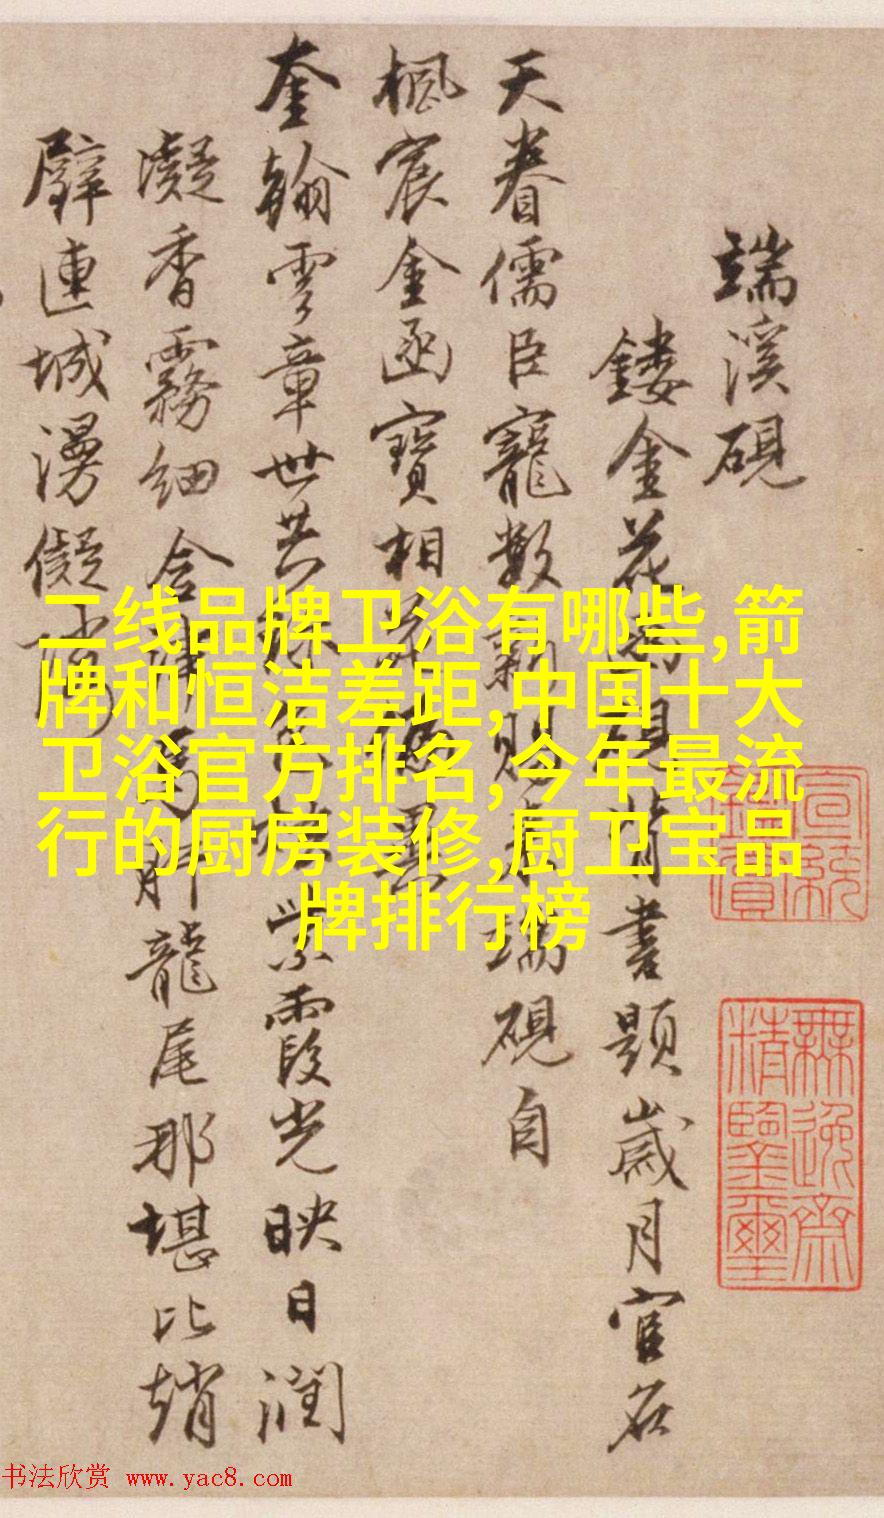 端溪硯
鏤金花
書題歲月官名
天眷儒臣寵數
瑞硯自
楓宸金函寶相
奎翰雲章世共
紫霞光映日潤
凝香霧細含
龍尾那堪比趙
璧連城湧儗
二线品牌卫浴有哪些,箭
牌和恒洁差距,中国十大
卫浴官方排名,今年最流
行的厨房装修,厨卫宝品
牌排行榜
無逸齋
精鑒璽
书法欣赏 www.yac8.com